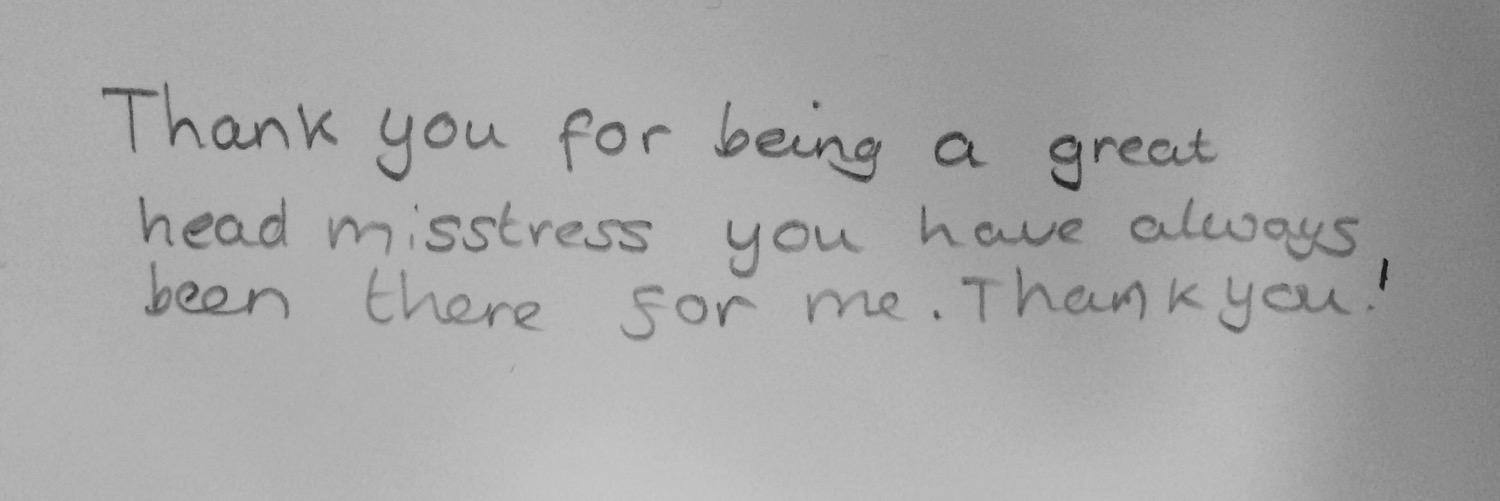 Thank you for being a great
head misstress you have always
been there for me. Thank you!